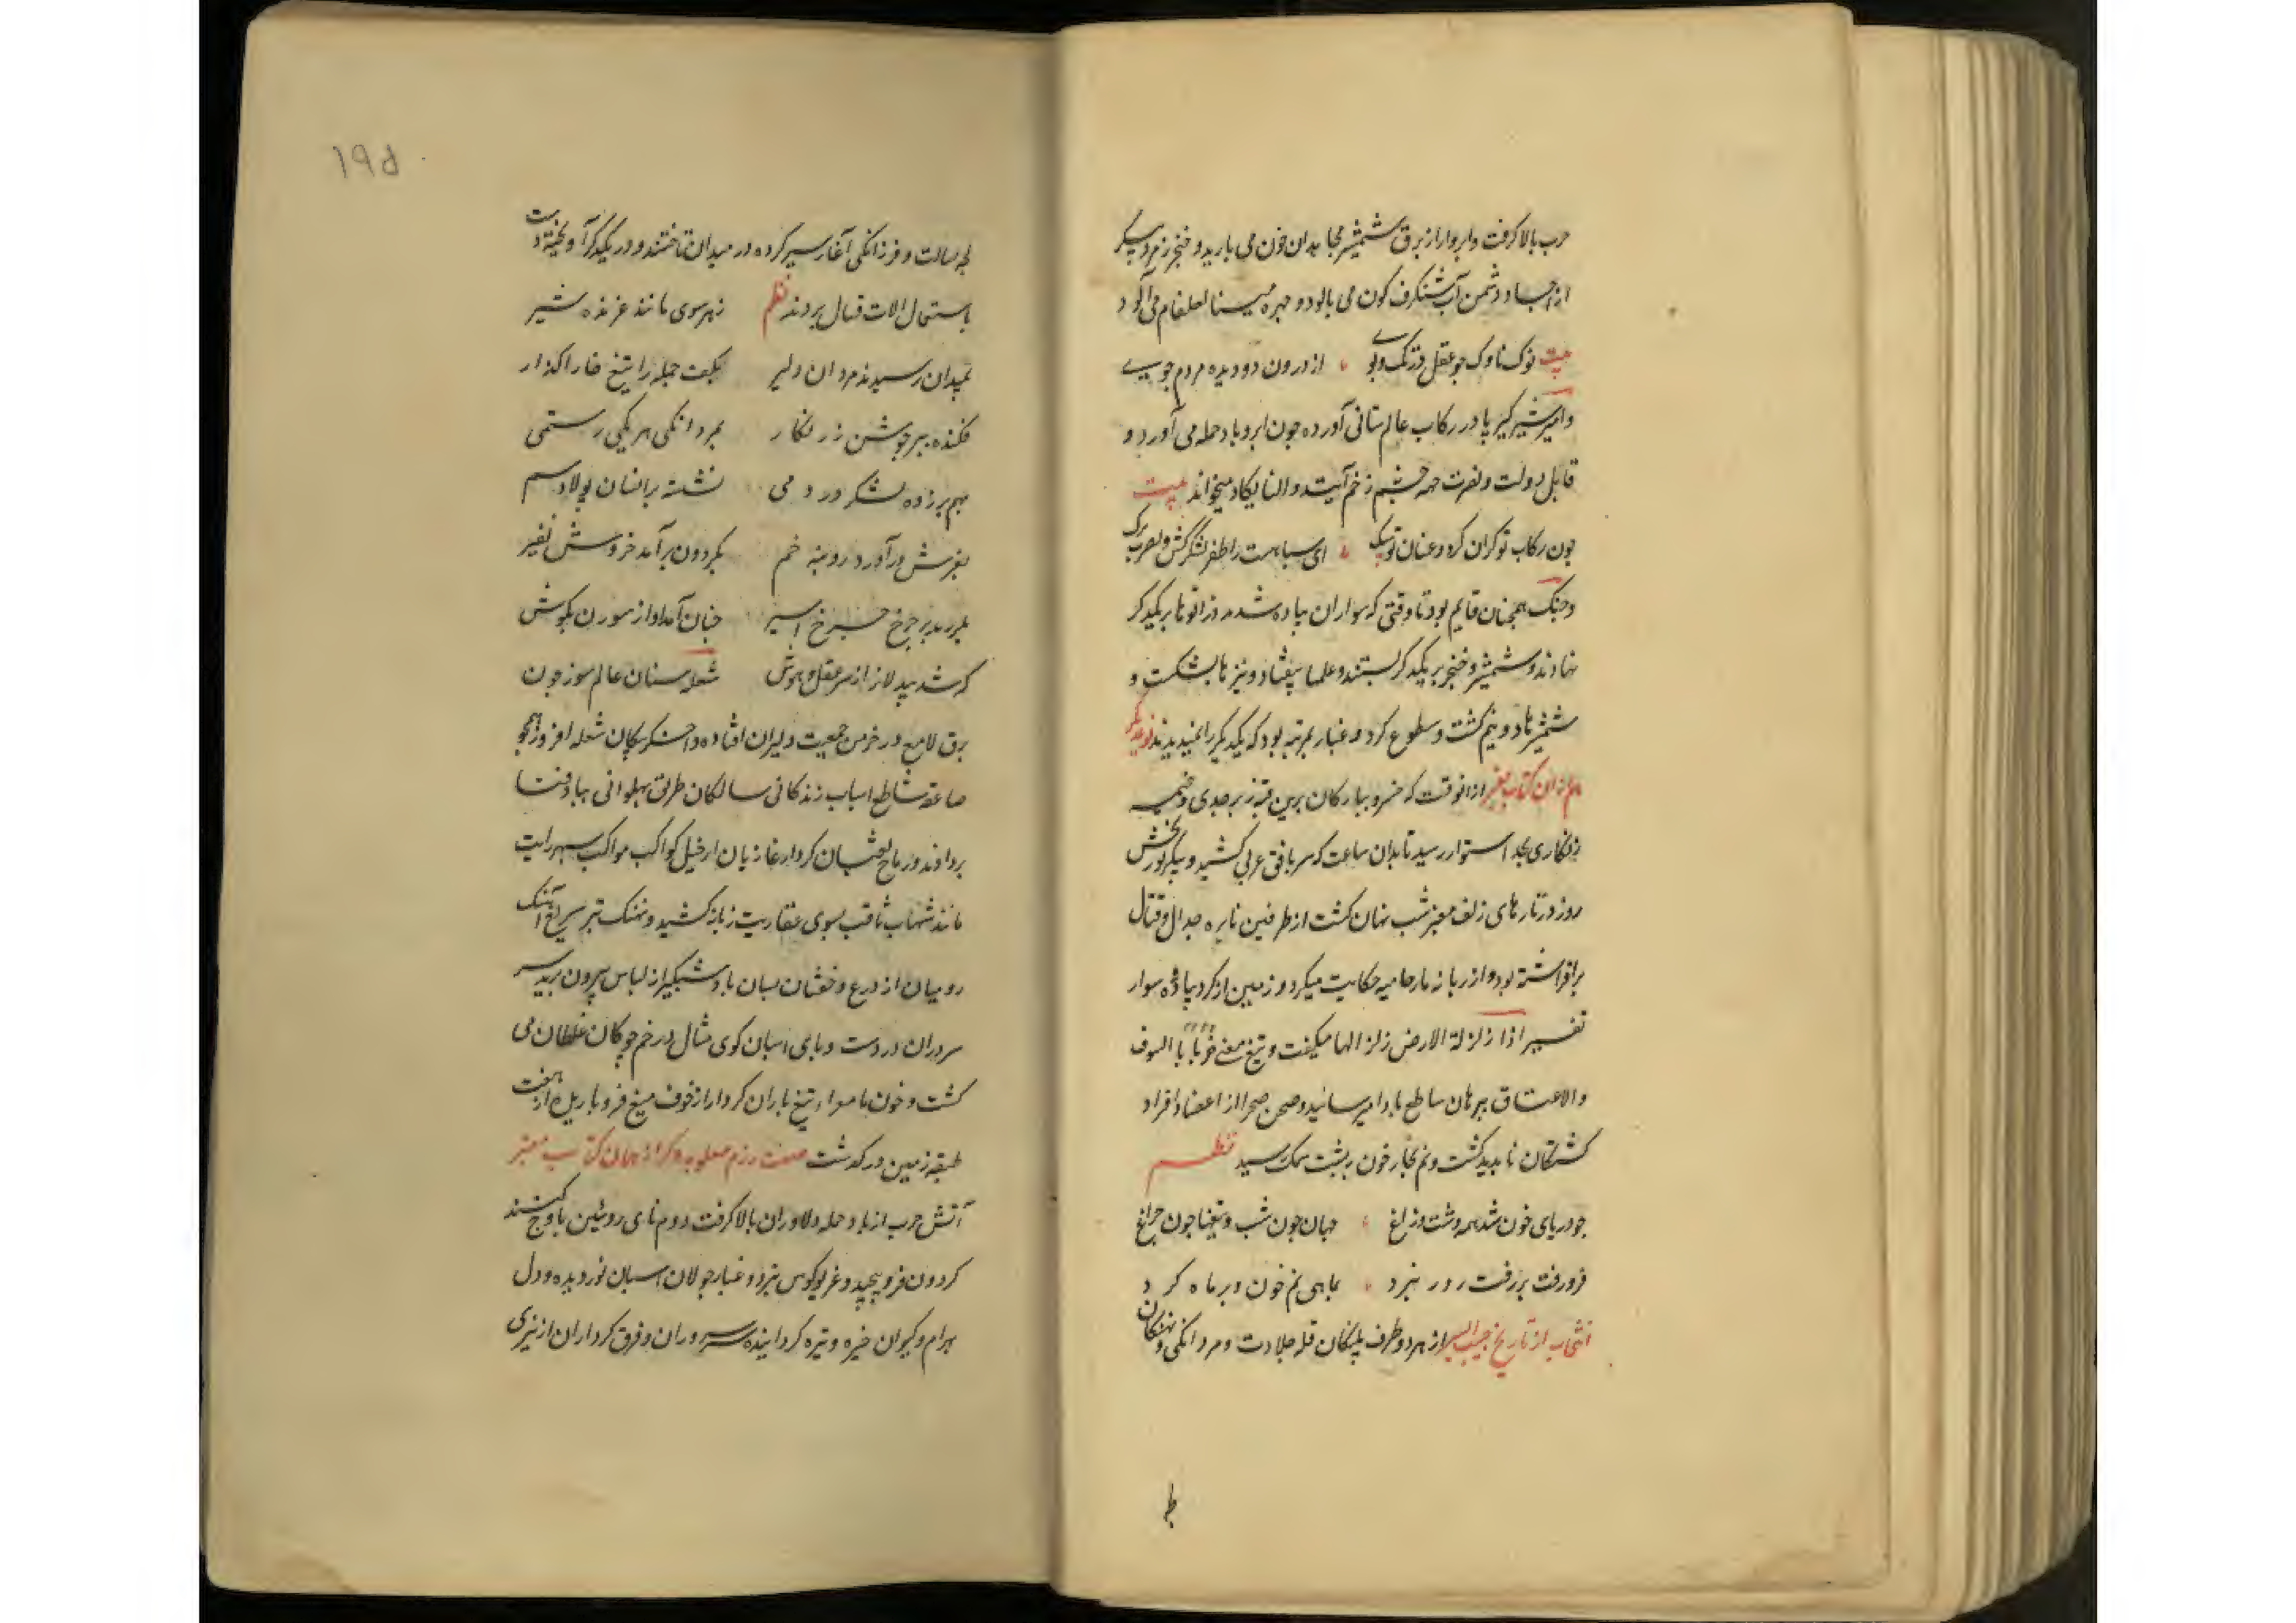 حرب بالا کرفت و ابروار از برق شمشیر مجاهدان خون می بارید و خنجر زمرد پیکر
از اجساد دشمن آب شنکرف کون می بالود و چهره مینا لعلفام می آلود
بیت نوک ناوک جو عقل در تک و بوی از درون دو دیده مردم جوی
و امیر شیرکیر پا در رکاب عالم ستانی آورده جون ابر و باد حمله می آورد و
قابل دولت و نصرت جهه چشم زخم آیت و ان یکاد میخواند بیت
جون رکاب تو کران کرد و عنان تو سبک ای سباهت را ظفر لشکرکش و نصرت یزک
و جنک همچنان قایم بود تا وقتی که سواران پیاده شدند و زانوها بر یکدکر
نهادند و شمشیر و خنجر بر یکدکر بستند و علمها بیفتاد و نیزها بشکست و
شمشیرها دو نیم کشت و سطوع کرد و غبار بمرتبه بود که یکدیکر را نمیدیدند
هم از ان کتاب معتبر از انوقت که خسرو سیارکان برین قبه زبرجدی و خیمه
زنکاری بحد استوا رسید تا بدان ساعت که سر بافق غربی کشید و پیکر نوربخش
روز در تارهای زلف معنبر شب نهان کشت از طرفین نایره جدال و قتال
برافراشته بود و از زبانه نار حامیه حکایت میکرد و زمین از کرد پیاده و سوار
تفسیر اذا زلزلة الارض زلزالها میکفت و تیغ معنی ضربا بالسوف
والاعناق ببرهان ساطع بادا میرسانید و صحن صحرا از اعضا و افراد
کشتکان نابدید کشت و نم بخار خون ببشت سمک رسید نظم
جو دریای خون شد همه دشت و راغ جهان جون شب و تیغها جون جراغ
فرو رفت بر رفت روز نبرد بماهی نم خون و بر ماه کرد
انتخاب از تاریخ حبیب السیر از هر دو طرف پلنکان قله جلادت و مردانکی و نهنکان
لجه بسالت و فرزانکی آغاز سیر کرده در میدان تاختند و در یکدیکر آویخته دست
باستعمال الات قتال بردند نظم زهر سوی مانند غرنده شیر
بمیدان رسیدند مردان دلیر بکف جمله را تیغ خارا کذار
فکنده ببر جوشن زرنکار بمردانکی هر یکی رستمی
بهم برزده لشکر در دمی نشسته بر اسبان پولاد سم
بغرش درآورد رویینه خم بکردون برآمد خروش نفیر
بلرزید بر چرخ چرخ اسیر جنان آمد آواز سورن بکوش
که شد بیدلان را ز سر عقل و هوش شعله سنان عالم سوز جون
برق لامع در خرمن جمعیت دلیران افتاده و اخکر پیکان شعله افروز همجو
صاعقه ساطع اسباب زندکانی سالکان طریق پهلوانی بباد فنا
برداد و رماح ثعبان کردار غازیان از خیل کواکب مواکب سپهر رایت
مانند شهاب ثاقب بسوی عفاریت زبانه کشید و نهنک تیر سریع آهنک
رومیان از درع و خفتان بسان باد شبکیر از لباس بیرون برید سر
سروران در دست و پای اسبان کوی مثال در خم چوکان غلطان می
کشت و خون با صداء تیغ باران کردار از خوف میغ فرو باریده از هفت
طبقه زمین درکذشت صفت رزم مغلوبه دکر از همان کتاب معتبر
آتش حرب از باد حمله دلاوران بالا کرفت و دم نای رویین باوج کشند
کردون فرو پیچید و غریو کوس نبرد و غبار جولان اسبان نور دیده و دل
بهرام و کیوان خیره و تیره کردانیده سر سروران و فرق کرداران از نیزی
ط
۱۹۵